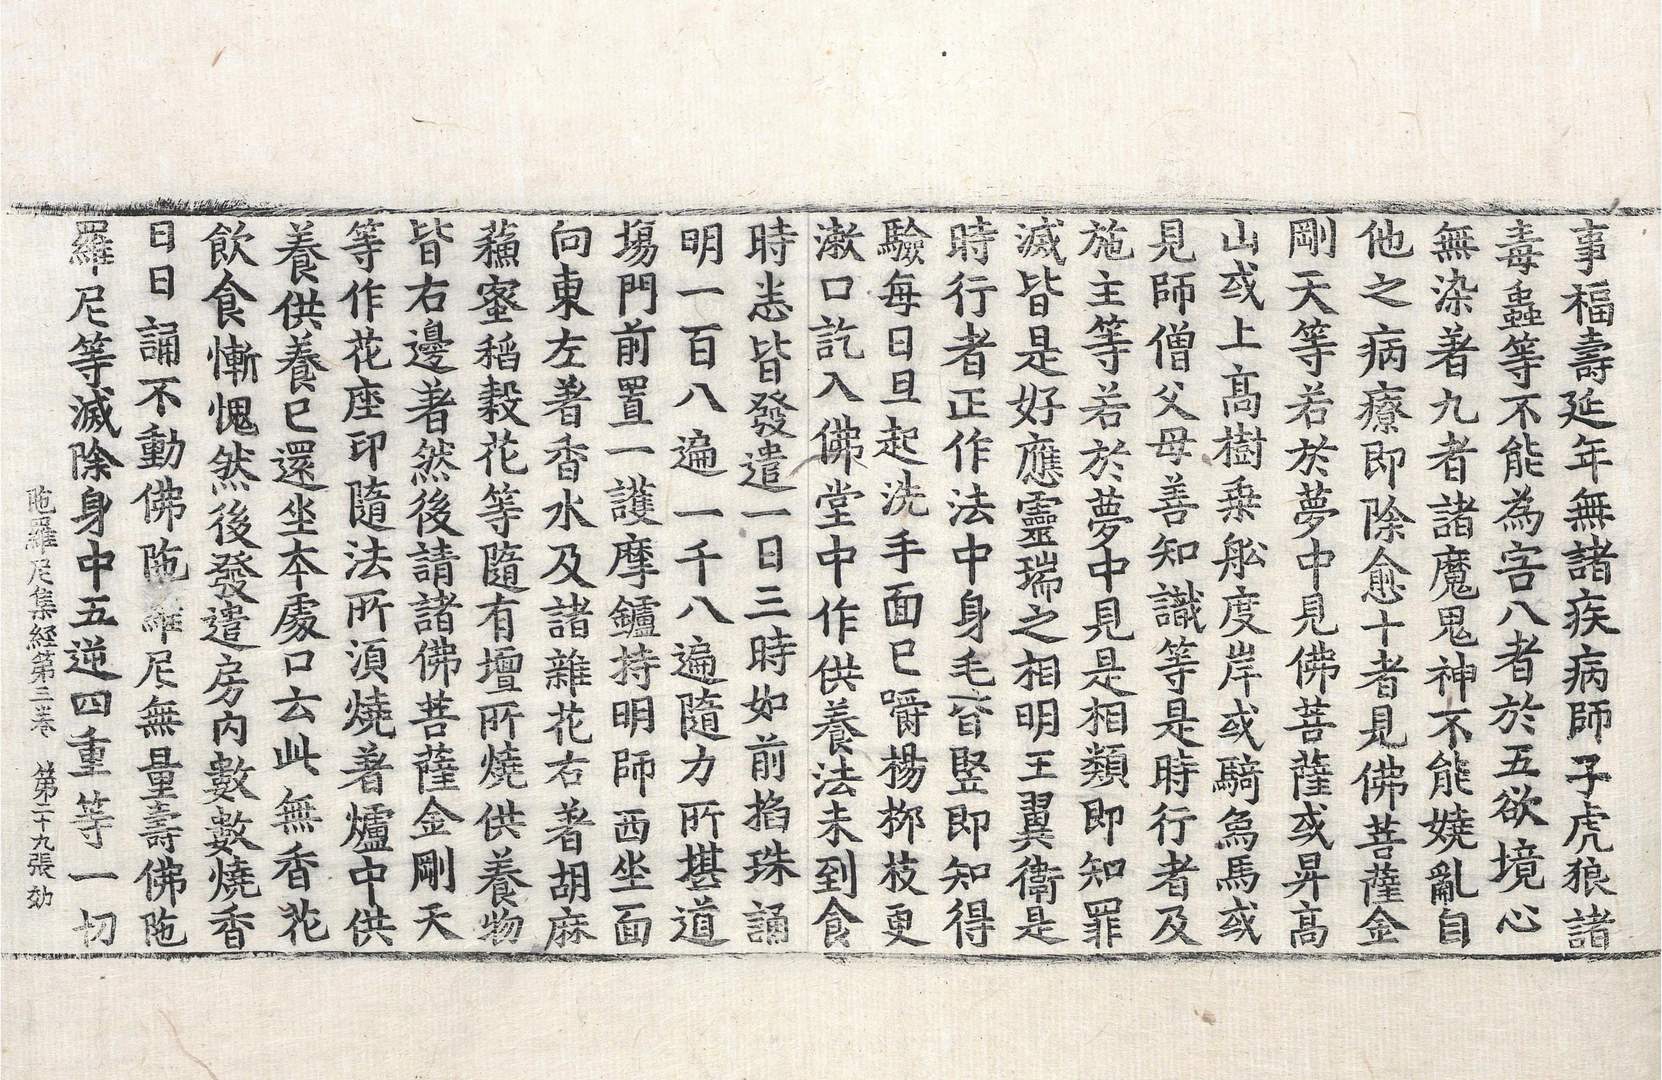 事福壽延年無諸疾病師子虎狼諸
毒蟲等不能為害八者於五欲境心
無染著九者諸魔鬼神不能嬈亂自
他之病療即除愈十者見佛菩薩金
剛天等若於夢中見佛菩薩或昇高
山或上高樹乗舩度岸或騎烏馬或
見師僧父母善知識等是時行者及
施主等若於夢中見是相類即知罪
滅皆是好應靈瑞之相明王翼衛是
時行者正作法中身毛皆竪即知得
驗每日旦起洗手面已嚼楊栁枝更
漱口訖入佛堂中作供養法未到食
時悉皆發遣一日三時如前掐珠誦
明一百八遍一千八遍隨力所堪道
塲門前置一護摩鑪持明師西坐面
向東左著香水及諸雜花右著胡麻
蘓蜜稻穀花等隨有壇所燒供養物
皆右邊著然後請諸佛菩薩金剛天
等作花座印隨法所湏燒著爐中供
養供養已還坐本處口云此無香花
飲食慚愧然後發遣房內數數燒香
日日誦不動佛陁羅尼無量壽佛陁
羅尼等滅除身中五逆四重等一切
陁羅尼集經第三卷 第二十九張 効